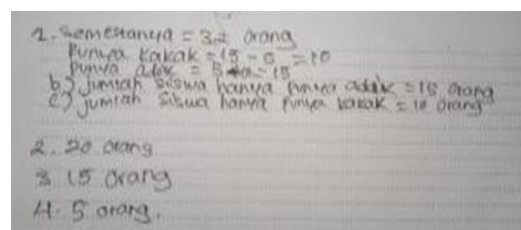 1. Semestanya = 32 orang
Punya kakak = 15 - 5 = 10
Punya adik = 15
b) jumlah siswa hanya punya adik = 15 orang
c) jumlah siswa hanya punya kakak = 10 orang
2. 20 orang
3. 15 orang
4. 5 orang.